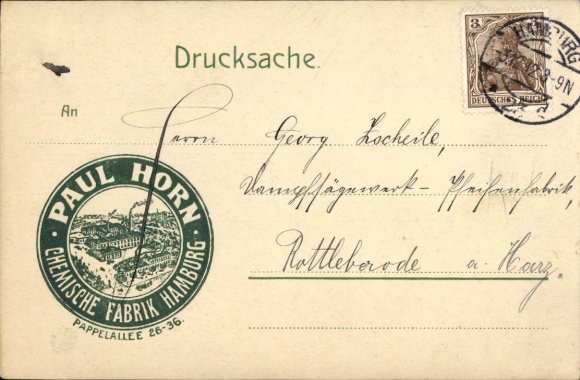 Drucksache.
3
DEUTSCHES REICH
HAMBURG
8-9N
An
Herrn Georg Zscheile,
Dampfsägewerk - Pfeifenfabrik,
Rottleberode a. Harz.
PAUL HORN
CHEMISCHE FABRIK HAMBURG
PAPPELALLEE 26-36.